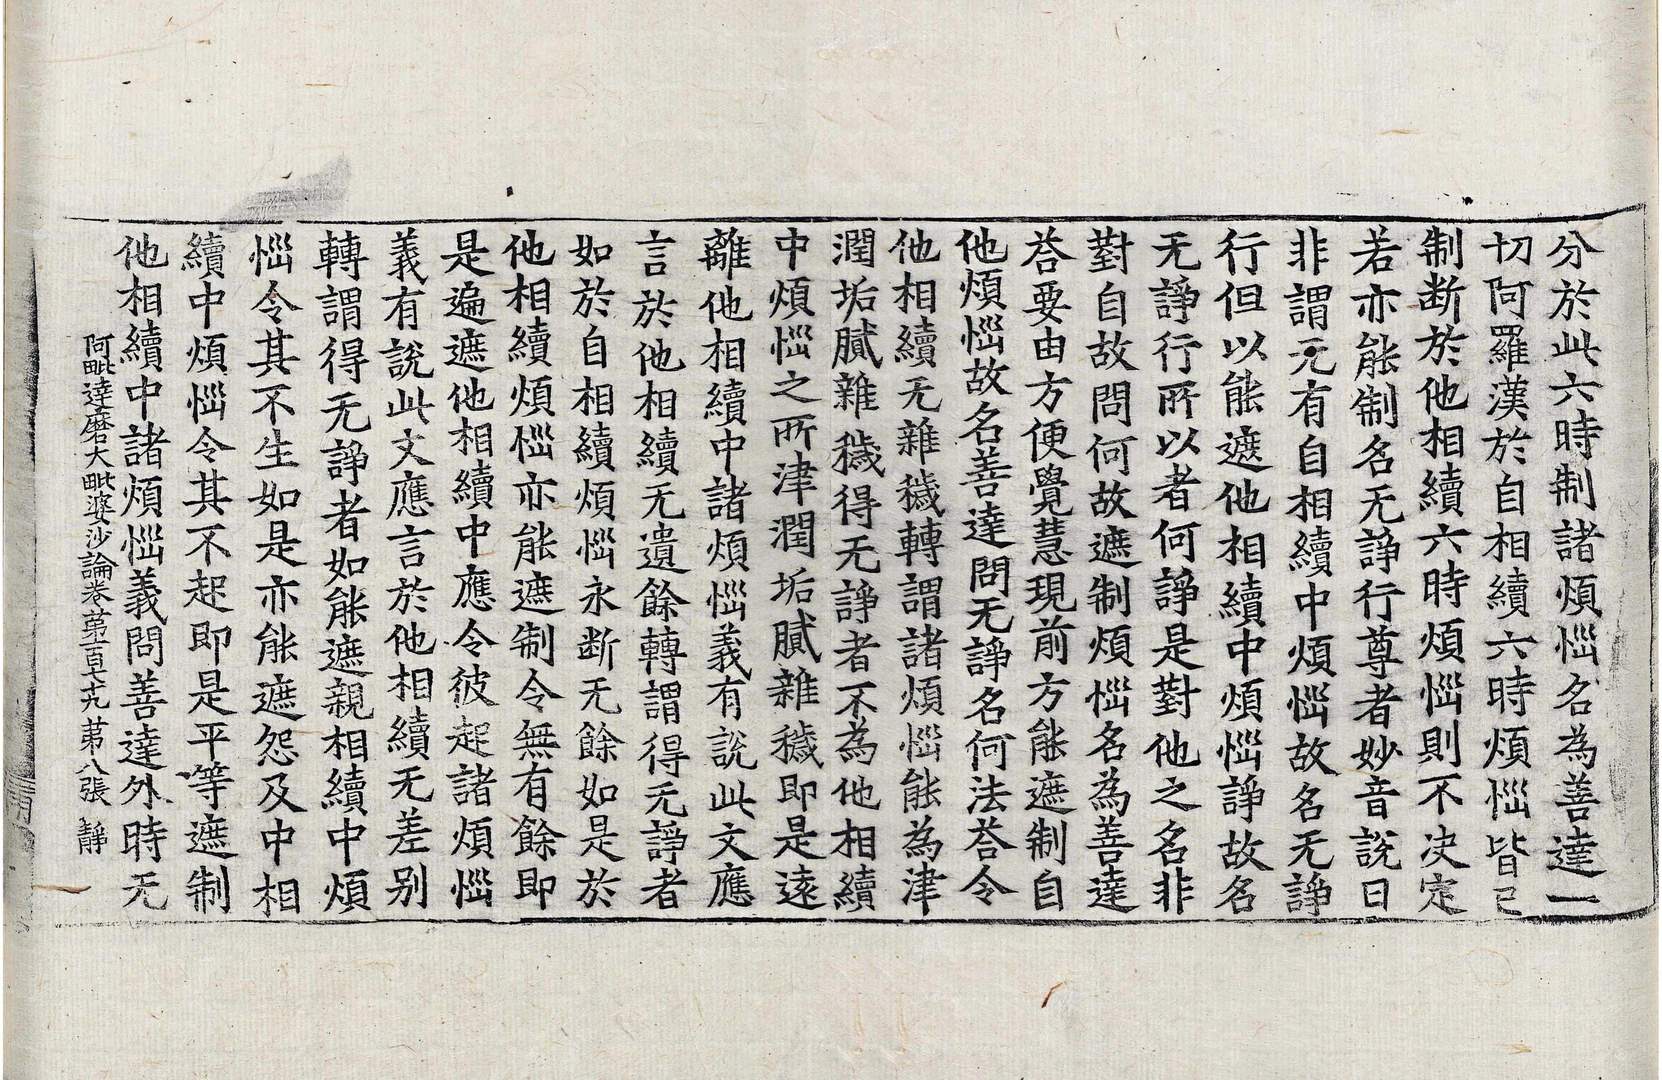 分於此六時制諸煩惱名為善達一
切阿羅漢於自相續六時煩惱皆已
制断於他相續六時煩惱則不决定
若亦能制名无諍行尊者妙音說曰
非謂无有自相續中煩惱故名无諍
行但以能遮他相續中煩惱諍故名
无諍行所以者何諍是對他之名非
對自故問何故遮制煩惱名為善達
荅要由方便覺慧現前方能遮制自
他煩惱故名善達問无諍名何法荅令
他相續无雜穢轉謂諸煩惱能為津
潤垢膩雜穢得无諍者不為他相續
中煩惱之所津潤垢膩雜穢即是遠
離他相續中諸煩惱義有說此文應
言於他相續无遺餘轉謂得无諍者
如於自相續煩惱永断无餘如是於
他相續煩惱亦能遮制令無有餘即
是遍遮他相續中應令彼起諸煩惱
義有說此文應言於他相續无差别
轉謂得无諍者如能遮親相續中煩
惱令其不生如是亦能遮怨及中相
續中煩惱令其不起即是平等遮制
他相續中諸煩惱義問善達外時无
阿毗達磨大毗婆沙論卷第百七十九 第八張 靜